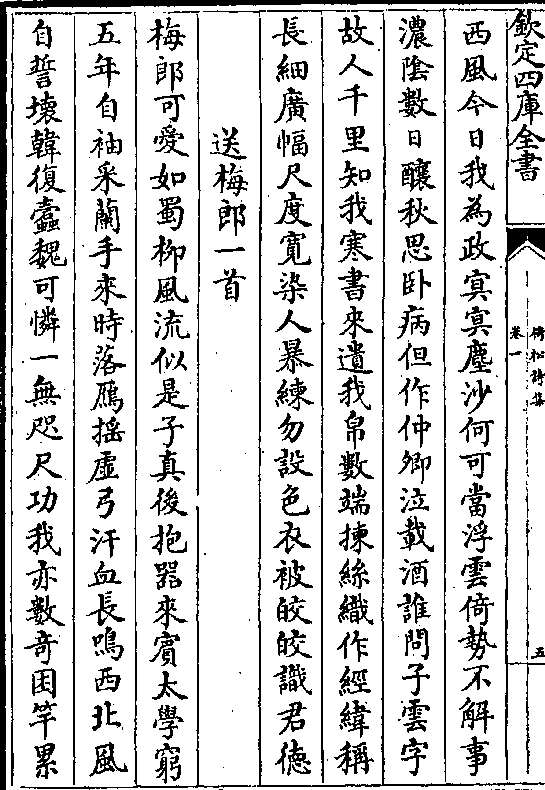 欽定四庫全書
倚松詩集
卷一
五
西風今日我為政㝠㝠塵沙何可當浮雲倚勢不解事
濃陰數日釀秋思卧病但作仲卿泣載酒誰問子雲字
故人千里知我寒書來遺我帛數端揀絲織作經緯稱
長細廣幅尺度寛染人暴練勿設色衣被皎皎識君徳
送梅郎一首
梅郎可愛如蜀柳風流似是子真後抱器來賓太學窮
五年自袖采蘭手來時落鴈揺虚弓汗血長鳴西北風
自誓壊韓復蠧魏可憐一無咫尺功我亦數竒困竿累